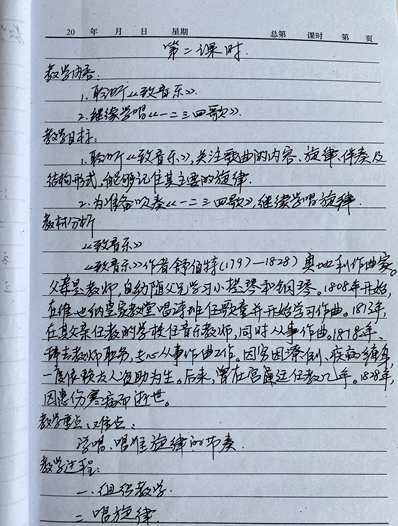 20 年 月 日 星期 总第 课时 第 页
第二课时.
教学内容:
1. 聆听《致音乐》.
2. 继续学唱《一二三四歌》.
教学目标:
1. 聆听《致音乐》,关注歌曲的内容、旋律、伴奏及
结构形式,能够记住其主要的旋律.
2. 为准备吹奏《一二三四歌》,继续学唱旋律.
教材分析
《致音乐》
《致音乐》作者舒伯特(1797—1828)奥地利作曲家。
父亲是教师,自幼随父兄学习小提琴和钢琴。1808年开始,
在维也纳皇家教堂唱诗班任歌童并开始学习作曲。1813年,
在其父亲任教的学校任音乐教师,同时从事作曲。1818年、
辞去教师职务,专心从事作曲工作。因穷困潦倒、疾病缠身,
一度依赖友人资助为生。后来,曾在宫廷任教几年。1828年,
因患伤寒病而逝世。
教学重点、难点:
学唱、唱准旋律的节奏
教学过程:
一、组织教学.
二、唱旋律